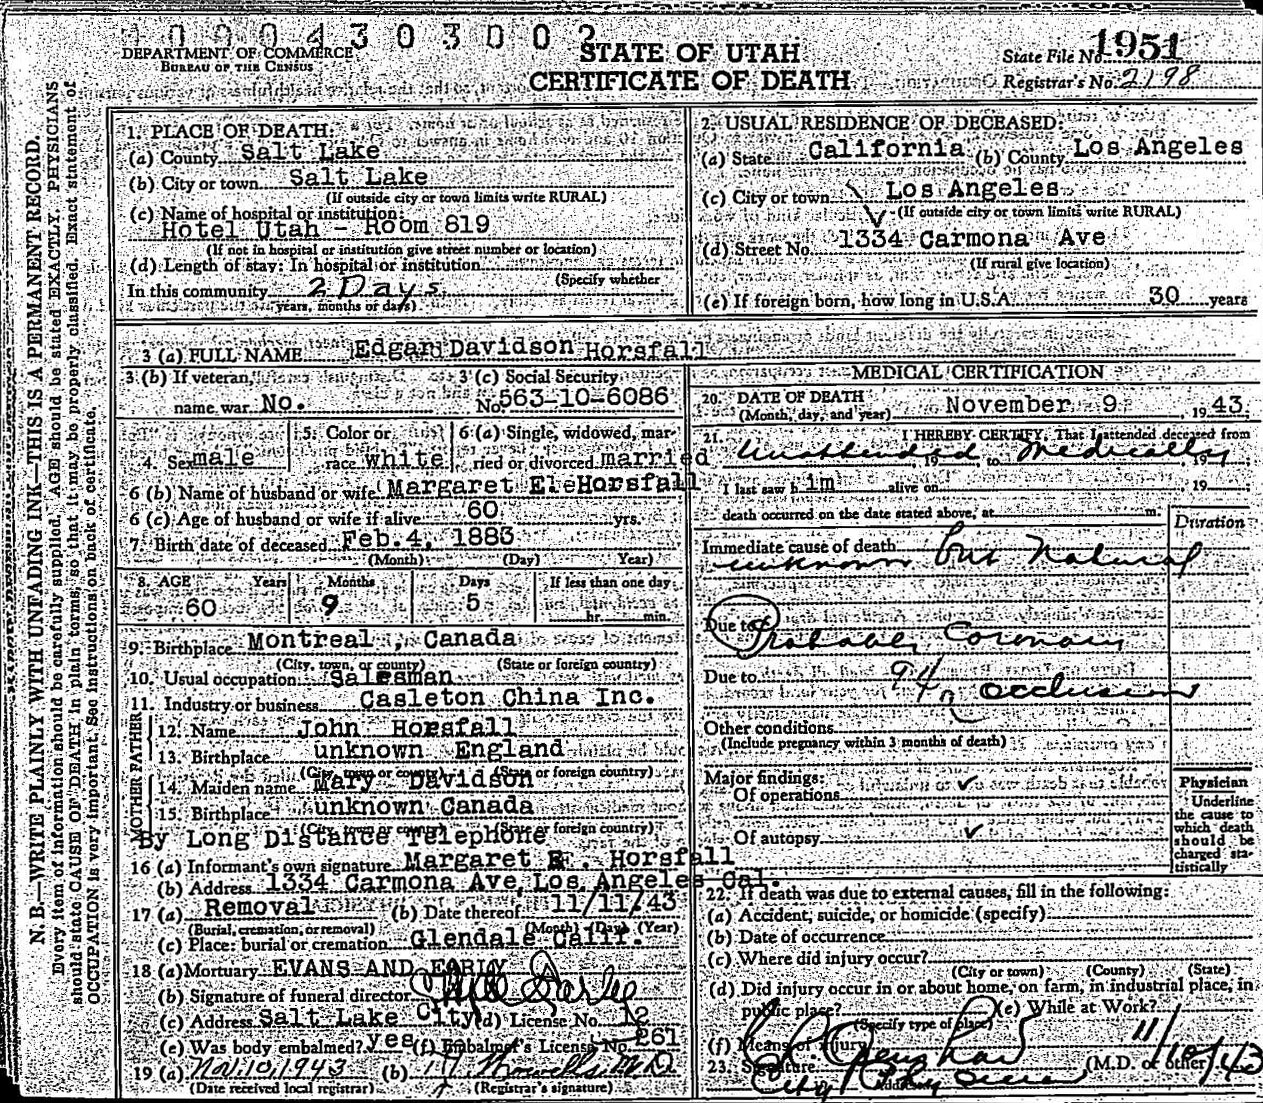 DEPARTMENT OF COMMERCE
BUREAU OF THE CENSUS
STATE OF UTAH
CERTIFICATE OF DEATH
State File No. 1951
Registrar's No. 2198
N. B.—WRITE PLAINLY WITH UNFADING INK—THIS IS A PERMANENT RECORD.
Every item of information should be carefully supplied. AGE should be stated EXACTLY. PHYSICIANS
should state CAUSE OF DEATH in plain terms, so that it may be properly classified. Exact statement of
OCCUPATION is very important. See instructions on back of certificate.
1. PLACE OF DEATH:
(a) County Salt Lake
(b) City or town Salt Lake
(If outside city or town limits write RURAL)
(c) Name of hospital or institution:
Hotel Utah - Room 819
(If not in hospital or institution give street number or location)
(d) Length of stay: In hospital or institution
(Specify whether
In this community 2 Days
years, months or days)
2. USUAL RESIDENCE OF DECEASED:
(a) State California (b) County Los Angeles
(c) City or town Los Angeles
(If outside city or town limits write RURAL)
(d) Street No. 1334 Carmona Ave
(If rural give location)
(e) If foreign born, how long in U.S.A. 30 years
3 (a) FULL NAME Edgar Davidson Horsfall
3 (b) If veteran, 3 (c) Social Security
name war No. No. 563-10-6086
4. Sex male 5. Color or race white 6 (a) Single, widowed, married or divorced married
6 (b) Name of husband or wife Margaret E Horsfall
6 (c) Age of husband or wife if alive 60 yrs.
7. Birth date of deceased Feb. 4, 1883
(Month) (Day) Year)
8. AGE Years Months Days If less than one day
60 9 5 hr. min.
9. Birthplace Montreal, Canada
(City, town, or county) (State or foreign country)
10. Usual occupation Salesman
11. Industry or business Casleton China Inc.
FATHER
12. Name John Horsfall
13. Birthplace unknown England
(City, town or county) (State or foreign country)
MOTHER
14. Maiden name Mary Davidson
15. Birthplace unknown Canada
(City, town or county) (State or foreign country)
By Long Distance Telephone
16 (a) Informant's own signature Margaret E. Horsfall
(b) Address 1334 Carmona Ave, Los Angeles Cal.
17 (a) Removal (b) Date thereof 11/11/43
(Burial, cremation, or removal) (Month) (Day) (Year)
(c) Place: burial or cremation Glendale Calif.
18 (a) Mortuary EVANS AND EARLY
(b) Signature of funeral director
(c) Address Salt Lake City (d) License No. 12
(e) Was body embalmed? yes (f) Embalmer's License No. 261
19 (a) Nov. 10, 1943 (b)
(Date received local registrar) (Registrar's signature)
MEDICAL CERTIFICATION
20. DATE OF DEATH
(Month, day, and year) November 9, 1943
21. I HEREBY CERTIFY, That I attended deceased from
Unattended, 19 to Medically, 19
I last saw him alive on 19
death occurred on the date stated above, at m.
Duration
Immediate cause of death but Natural
unknown
Due to Probable Coronary
Due to 94a occlusion
Other conditions
(Include pregnancy within 3 months of death)
Major findings:
Of operations ✓
Of autopsy ✓
Physician
Underline
the cause to
which death
should be
charged sta-
tistically
22. If death was due to external causes, fill in the following:
(a) Accident, suicide, or homicide (specify)
(b) Date of occurrence
(c) Where did injury occur?
(City or town) (County) (State)
(d) Did injury occur in or about home, on farm, in industrial place, in
public place? (e) While at Work?
(Specify type of place)
(f) Means of injury
23. Signature (M.D. or other) 11/10/43
City Physician